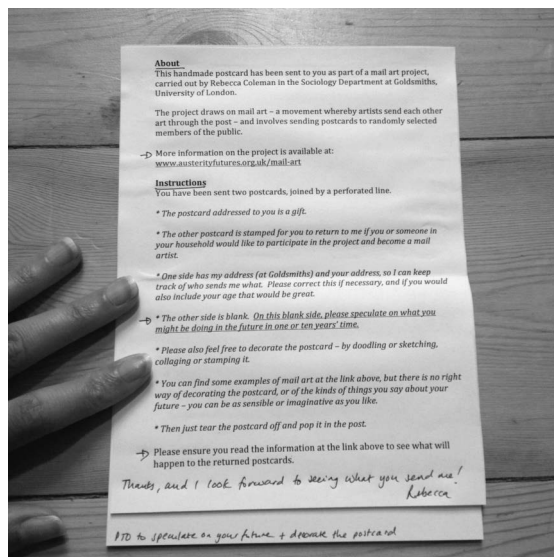 About
This handmade postcard has been sent to you as part of a mail art project,
carried out by Rebecca Coleman in the Sociology Department at Goldsmiths,
University of London.
The project draws on mail art – a movement whereby artists send each other
art through the post – and involves sending postcards to randomly selected
members of the public.
More information on the project is available at:
www.austerityfutures.org.uk/mail-art
Instructions
You have been sent two postcards, joined by a perforated line.
* The postcard addressed to you is a gift.
* The other postcard is stamped for you to return to me if you or someone in
your household would like to participate in the project and become a mail
artist.
* One side has my address (at Goldsmiths) and your address, so I can keep
track of who sends me what. Please correct this if necessary, and if you would
also include your age that would be great.
* The other side is blank. On this blank side, please speculate on what you
might be doing in the future in one or ten years' time.
* Please also feel free to decorate the postcard – by doodling or sketching,
collaging or stamping it.
* You can find some examples of mail art at the link above, but there is no right
way of decorating the postcard, or of the kinds of things you say about your
future – you can be as sensible or imaginative as you like.
* Then just tear the postcard off and pop it in the post.
Please ensure you read the information at the link above to see what will
happen to the returned postcards.
Thanks, and I look forward to seeing what you send me!
Rebecca
PTO to speculate on your future + decorate the postcard